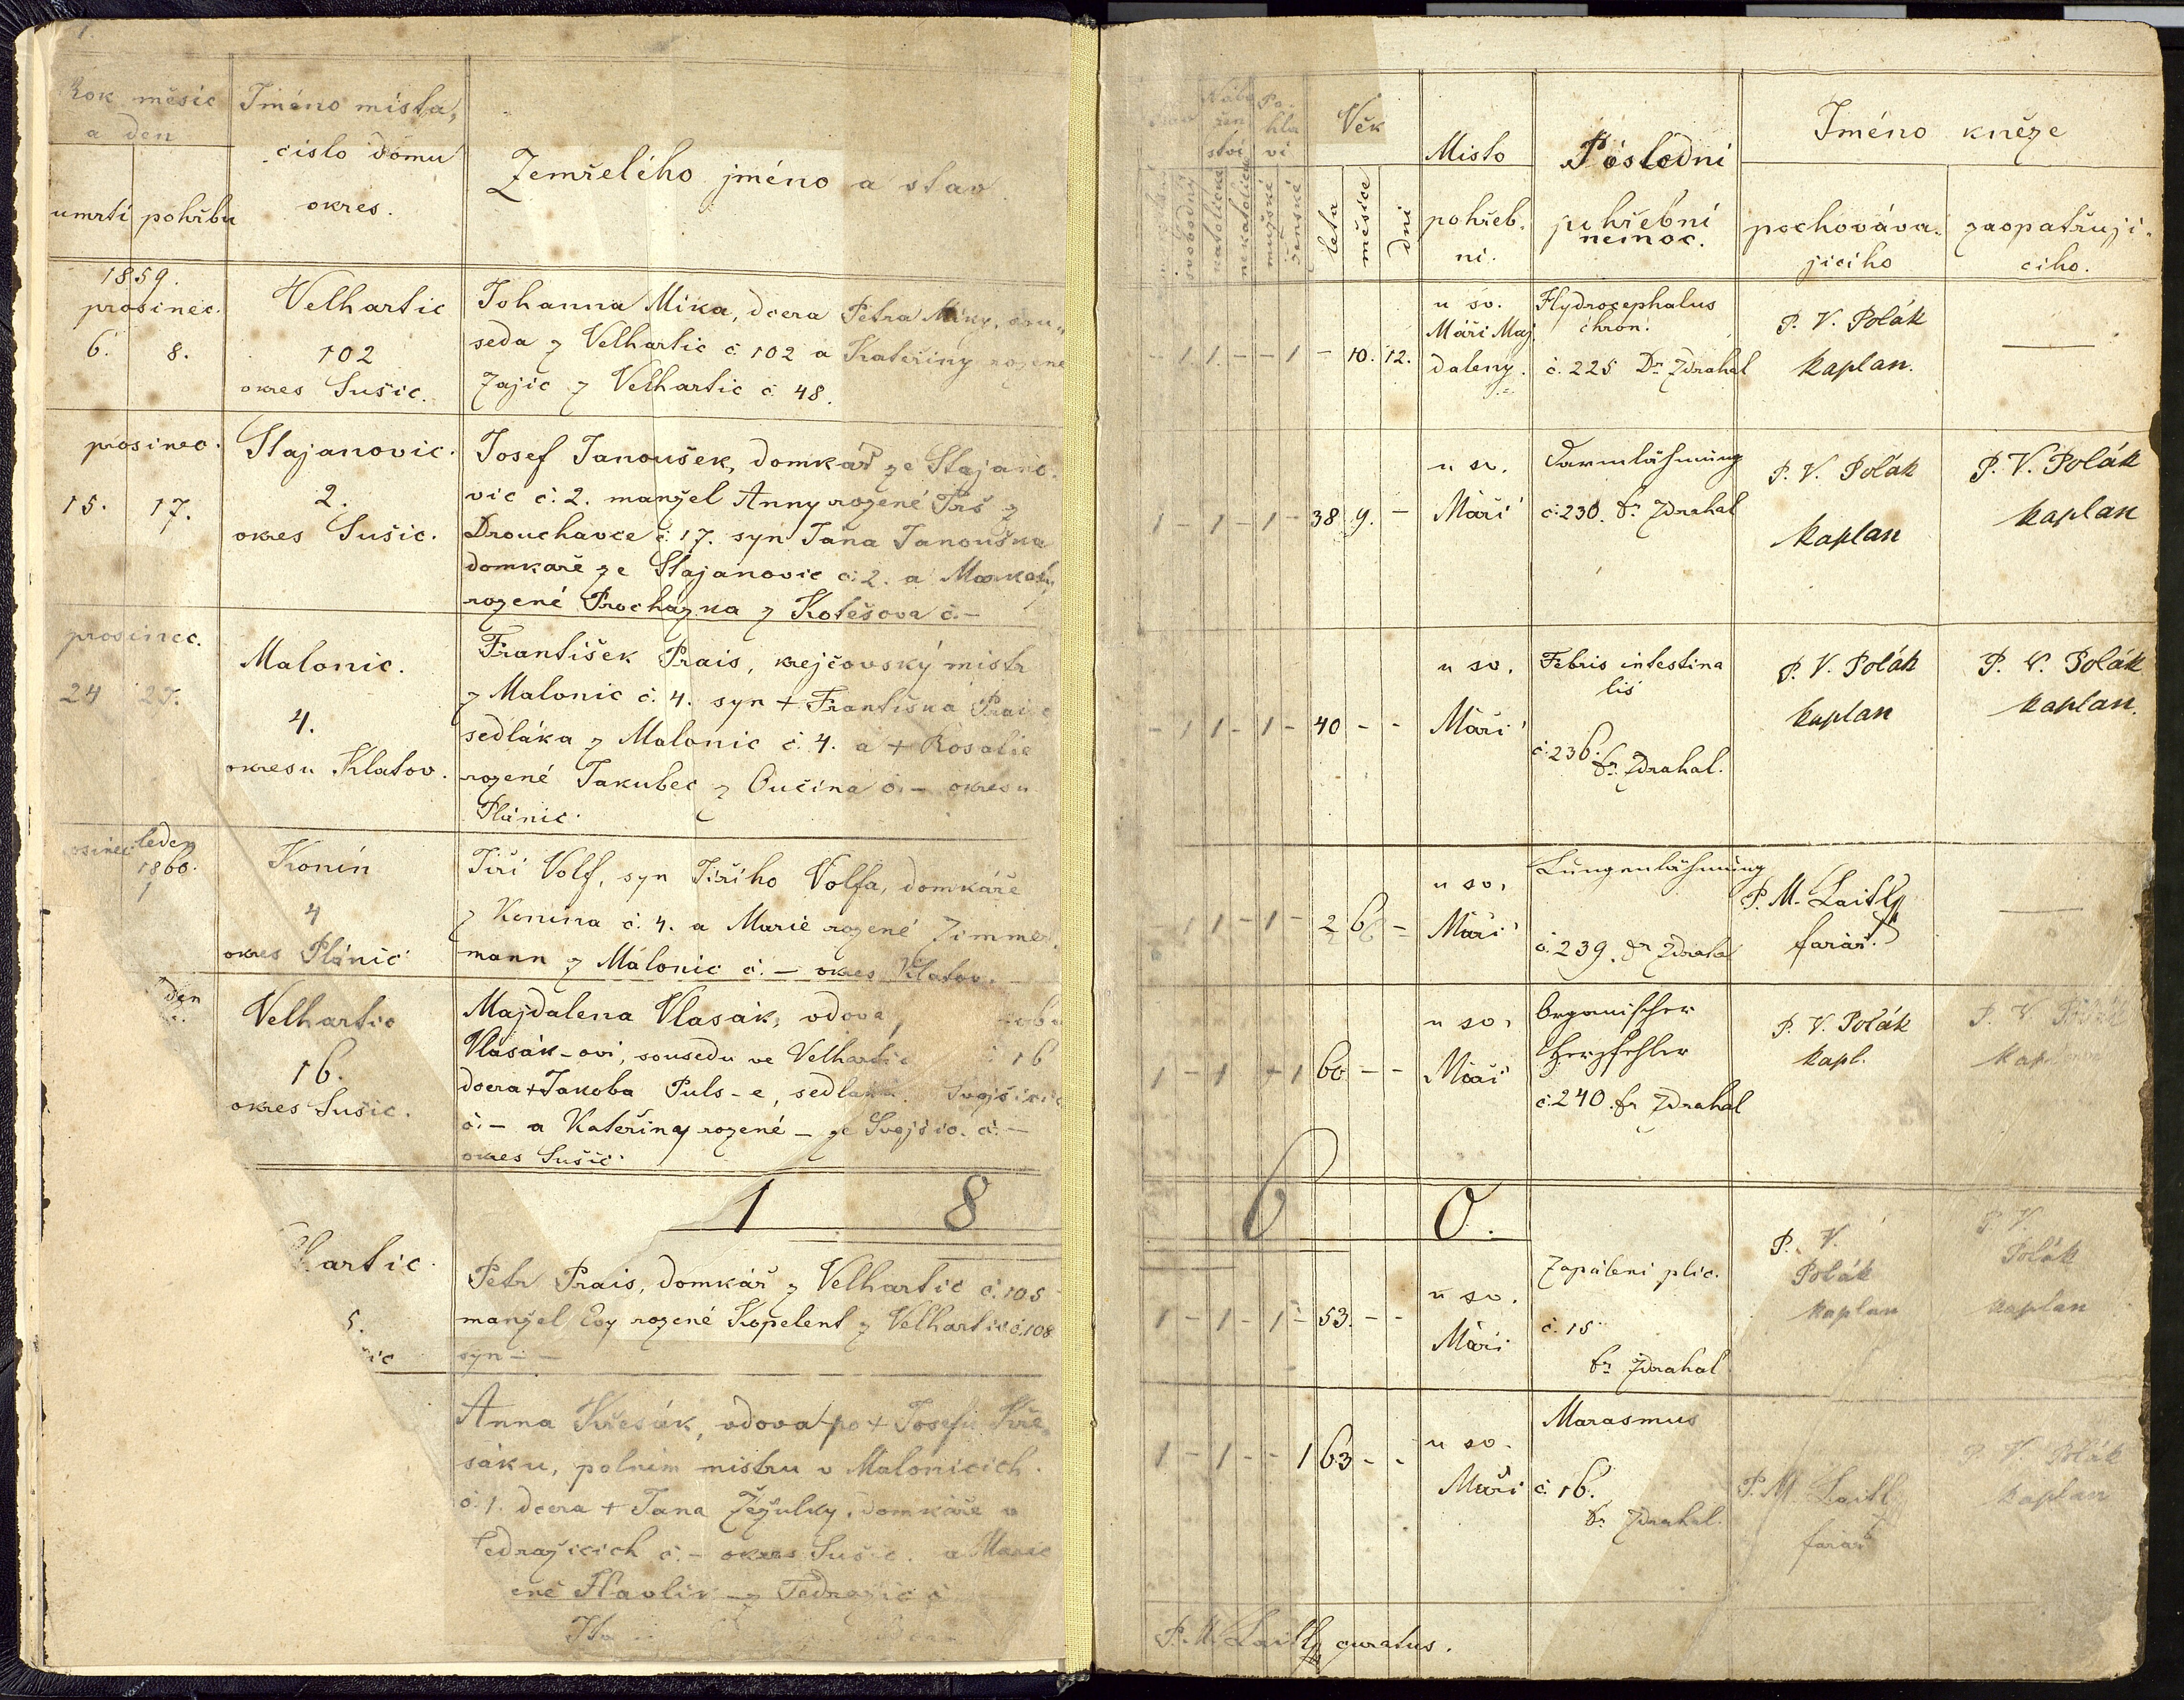 1.
Rok měsíc
a den
umrtí pohřbu
Jméno místa,
číslo domu
okres.
Zemřelého jméno a stav
1859.
prosinec.
6. 8.
Velhartic
102
okres Sušic.
Johanna Mika, dcera Petra Miky, sou-
seda z Velhartic č. 102 a Kateřiny rozené
Zajíc z Velhartic č. 48.
prosinec.
15. 17.
Stajanovic.
2.
okres Sušic.
Josef Janoušek, domkář ze Stajano-
vic č. 2. manžel Anny rozené Trš z
Drouhavce č. 17. syn Jana Janouška
domkaře ze Stajanovic č. 2. a
rozené Prochazka z Kotešova č. –
prosinec.
24 27.
Malonic.
4.
okresu Klatov.
František Prais, krejčovský mistr
z Malonic č. 4. syn + Františka Prais
sedláka z Malonic č. 4. a + Rosalie
rozené Jakubec z Oučina č. – okresu
Plánic.
osinec leden
1860.
1
Konín
4
okres Plánic
Jiří Volf, syn Jiřího Volfa, domkáře
z Konína č. 4. a Marie rozené Zimmer-
mann z Málonic č. – okres Klatov.
den
Velhartic
16.
okres Sušic.
Majdalena Vlasák, vdova
Vlasák-ovi, sousedu ve Velhartic č 16
dcera + Jakoba Puls-e, sedlaka
č. – a Kateřiny rozené – ze Svojšic. č. –
okres Sušic.
1 8
hartic.
5.
šic
Petr Prais, domkář z Velhartic č. 105
manžel Evy rozené Kopelent z Velhartic č. 108
syn – –
Anna Křesák, vdova po + Josefu Kře-
sáku, polním mistru v Malonicích
č. 1. dcera + Jana Žežulky, domkáře v
Tedražicích č. – okres Sušic. a Marie
ené Havlík – z Tedražic č
Nábo
žen
ství
Po-
hla
ví
Věk
svobodný
katolické
nekatolické
mužské
ženské
leta
měsíce
dni
Místo
pohřeb-
ní.
Poslední
pohřební
nemoc.
Jméno kněze
pochováva-
jícího
zaopatřují-
cího.
– 1 1 – – 1 – 10. 12.
u sv.
Máři Maj
daleny.
Hydrocephalus
chron.
č. 225 Dr Zdrahal
P. V. Polák
kaplan.
—
1 – 1 – 1 – 38 9. –
u sv.
Máří
Darmlähmung
č. 230. Dr Zdrahal
P. V. Polák
kaplan
P. V. Polák
kaplan
– 1 1 – 1 – 40 – –
u sv.
Máří
Febris intestina
lis
č. 236. Dr Zdrahal.
P. V. Polák
kaplan
P. V. Polák
kaplan.
– 1 1 – 1 – 2 6 –
u sv.
Máří
Lungenlähmung
č. 239. Dr Zdrahal
P. M. Laitly
farář.
—
1 – 1 – 1 60 – –
u sv.
Máří
Organischer
Herzfehler
č. 240. Dr Zdrahal
P. V. Polák
kapl.
P. V. Polák
kaplan
6 0.
1 – 1 – 1 – 53. – –
u sv.
Máří
Zapálení plic.
č. 15
Dr Zdrahal
P. V.
Polák
kaplan
P. V.
Polák
kaplan
1 – 1 – – 1 63 – –
u sv.
Máří
Marasmus
č. 16.
Dr Zdrahal.
P. M. Laitly
farář
P. V. Polák
kaplan
P. M. Laitly curatus.